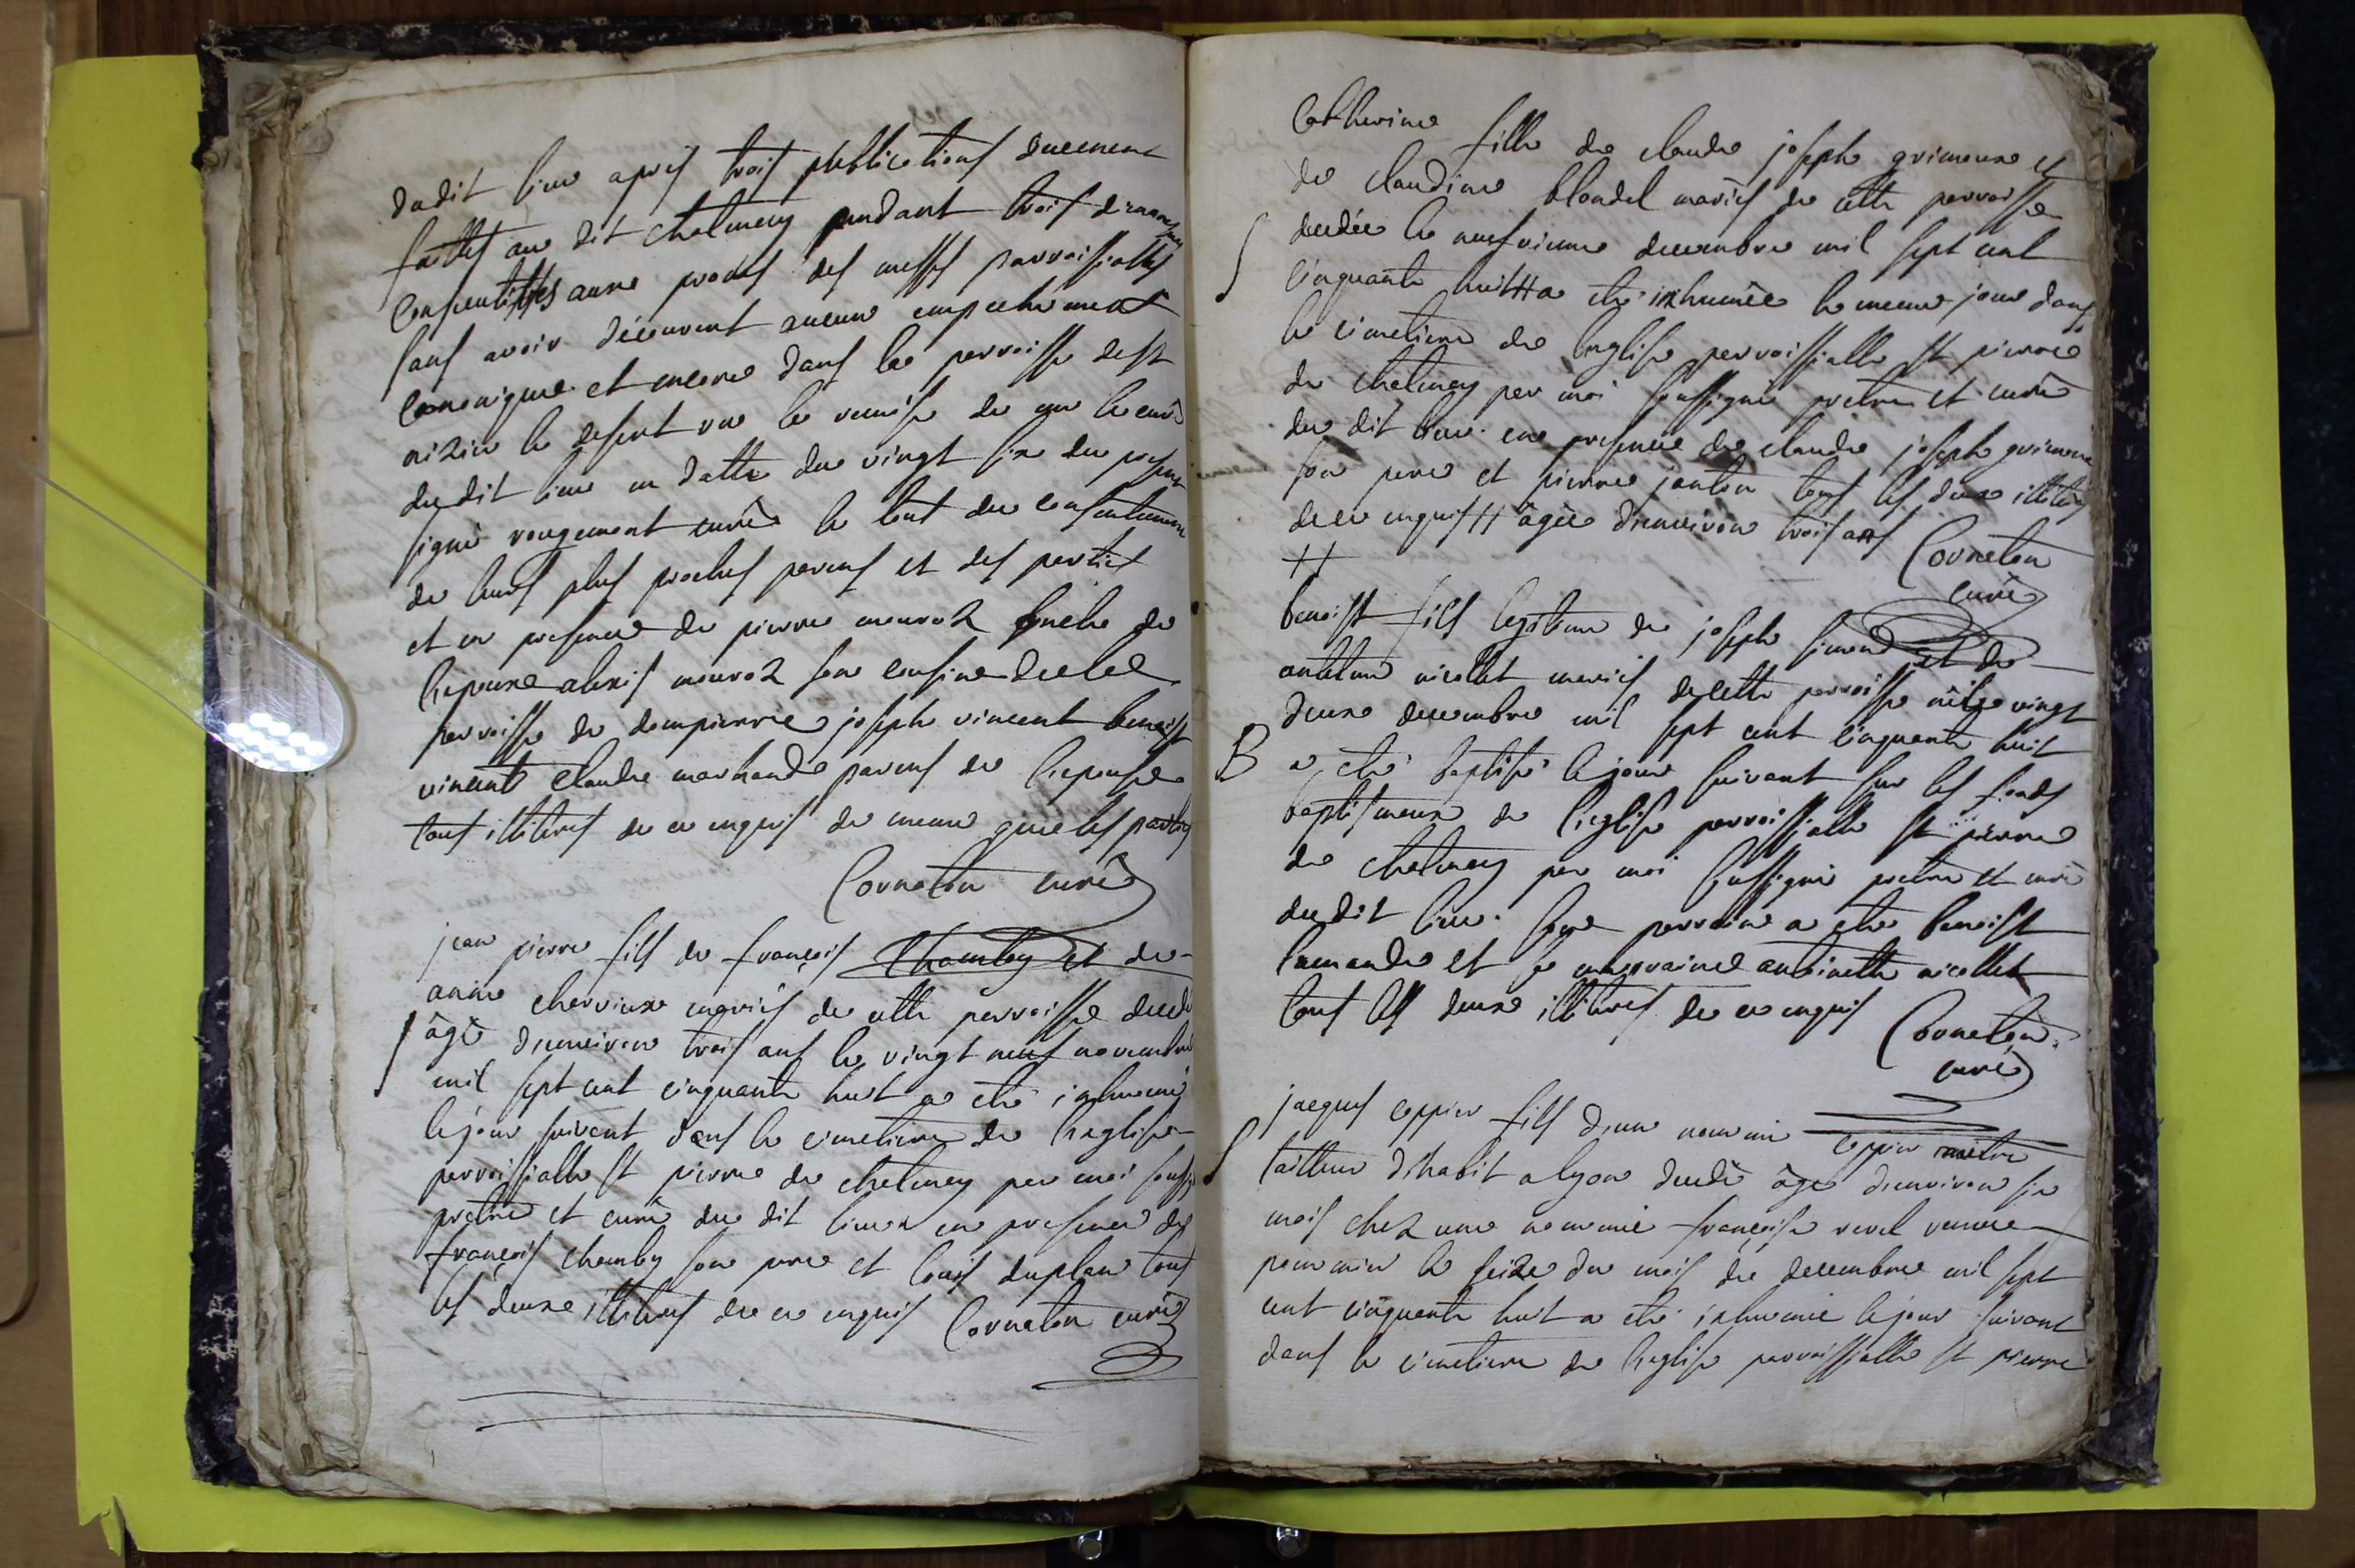 dudit lieu apres trois publications duement
faittes au dit chalamey pendant trois dimanches
consecutifs aux prones des messes parroissialles
sans avoir découvert aucun empechement
canonique et encore dans la parroisse de st
nizier le desert vu la remise de mr le curé
dudit lieu en datte du vingt six du present
signé rougemont curé le tout du consentement
de leurs plus proches parens et des parties
et en presence de pierre mouroz oncle de
l'epouse alexis mouroz son cousin de la
parroisse de dompierre joseph vincent benoist
vincent claude marchand parens de l'epouse
tous illiteres de ce enquis de meme que les parties
Corneton curé
jean pierre fils de françois chamby et de
anne chervieux mariés de cette parroisse decedé
S âgé d'environ trois ans le vingt neuf novembre
mil sept cent cinquante huit a eté inhumé
le jour suivant dans le cimetiere de l'eglise
parroissialle st pierre de chalamey par moi soussigné
pretre et curé du dit lieu en presence de
françois chamby son pere et louis duplan tous
les deux illiteres de ce enquis Corneton curé
Catherine fille de claude joseph grimoux et
de claudine blondel mariés de cette parroisse
S decedée le neufvieme decembre mil sept cent
cinquante huit H a eté inhumée le meme jour dans
le cimetiere de l'eglise parroissialle st pierre
de chalamey par moi soussigné pretre et curé
du dit lieu en presence de claude joseph grimoux
son pere et pierre janton tous les deux illiteres
de ce enquis H âgée d'environ trois ans
Corneton
H
curé
benoist fils legitime de joseph simond et de
antoine nicollet mariés de cette parroisse né le vingt
deux decembre mil sept cent cinquante huit
B a eté baptisé le jour suivant sur les fonds
baptismaux de l'eglise parroissialle st pierre
de chalamey par moi soussigné pretre et curé
dudit lieu son parrain a eté benoist
lamande et sa marraine antoinette nicollet
tous les deux illiteres de ce enquis Corneton
curé
jacques coppier fils d'un nommé coppier maitre
S tailleur d'habit a lyon decedé âgé d'environ six
mois chez une nommée françoise revel veuve
pommier le seize du mois de decembre mil sept
cent cinquante huit a eté inhumé le jour suivant
dans le cimetiere de l'eglise parroissialle st pierre